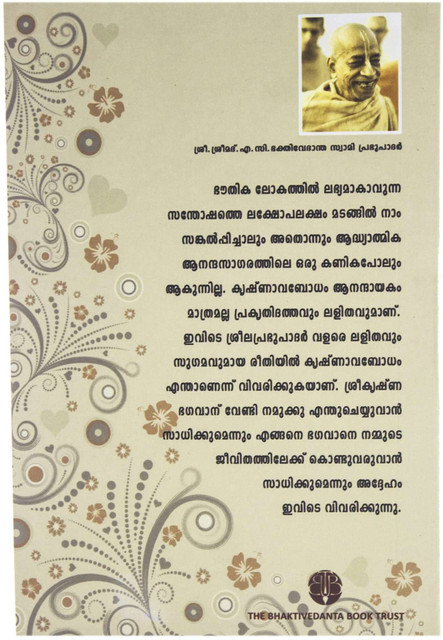 ശ്രീ. ശ്രീമദ്. എ. സി. ഭക്തിവേദാന്ത സ്വാമി പ്രഭുപാദർ
ഭൗതിക ലോകത്തിൽ ലഭ്യമാകാവുന്ന
സന്തോഷത്തെ ലക്ഷോപലക്ഷം മടങ്ങിൽ നാം
സങ്കൽപ്പിച്ചാലും അതൊന്നും ആദ്ധ്യാത്മിക
ആനന്ദസാഗരത്തിലെ ഒരു കണികപോലും
ആകുന്നില്ല. കൃഷ്ണാവബോധം ആനന്ദായകം
മാത്രമല്ല പ്രകൃതിദത്തവും ലളിതവുമാണ്.
ഇവിടെ ശ്രീലപ്രഭുപാദർ വളരെ ലളിതവും
സുഗമവുമായ രീതിയിൽ കൃഷ്ണാവബോധം
എന്താണെന്ന് വിവരിക്കുകയാണ്. ശ്രീകൃഷ്ണ
ഭഗവാന് വേണ്ടി നമുക്കു എന്തുചെയ്യുവാൻ
സാധിക്കുമെന്നും എങ്ങനെ ഭഗവാനെ നമ്മുടെ
ജീവിതത്തിലേക്ക് കൊണ്ടുവരുവാൻ
സാധിക്കുമെന്നും അദ്ദേഹം
ഇവിടെ വിവരിക്കുന്നു.
THE BHAKTIVEDANTA BOOK TRUST